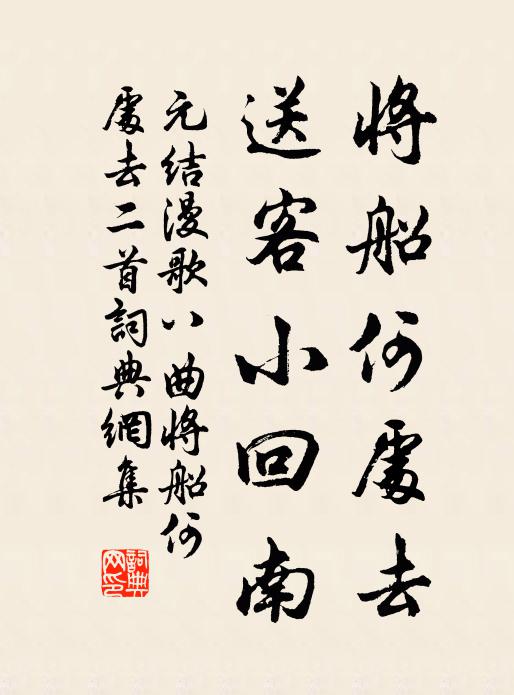 將船何處去
送客小回南
元結漫歌八曲將船何
處去二首詞典網集
詞典
网印